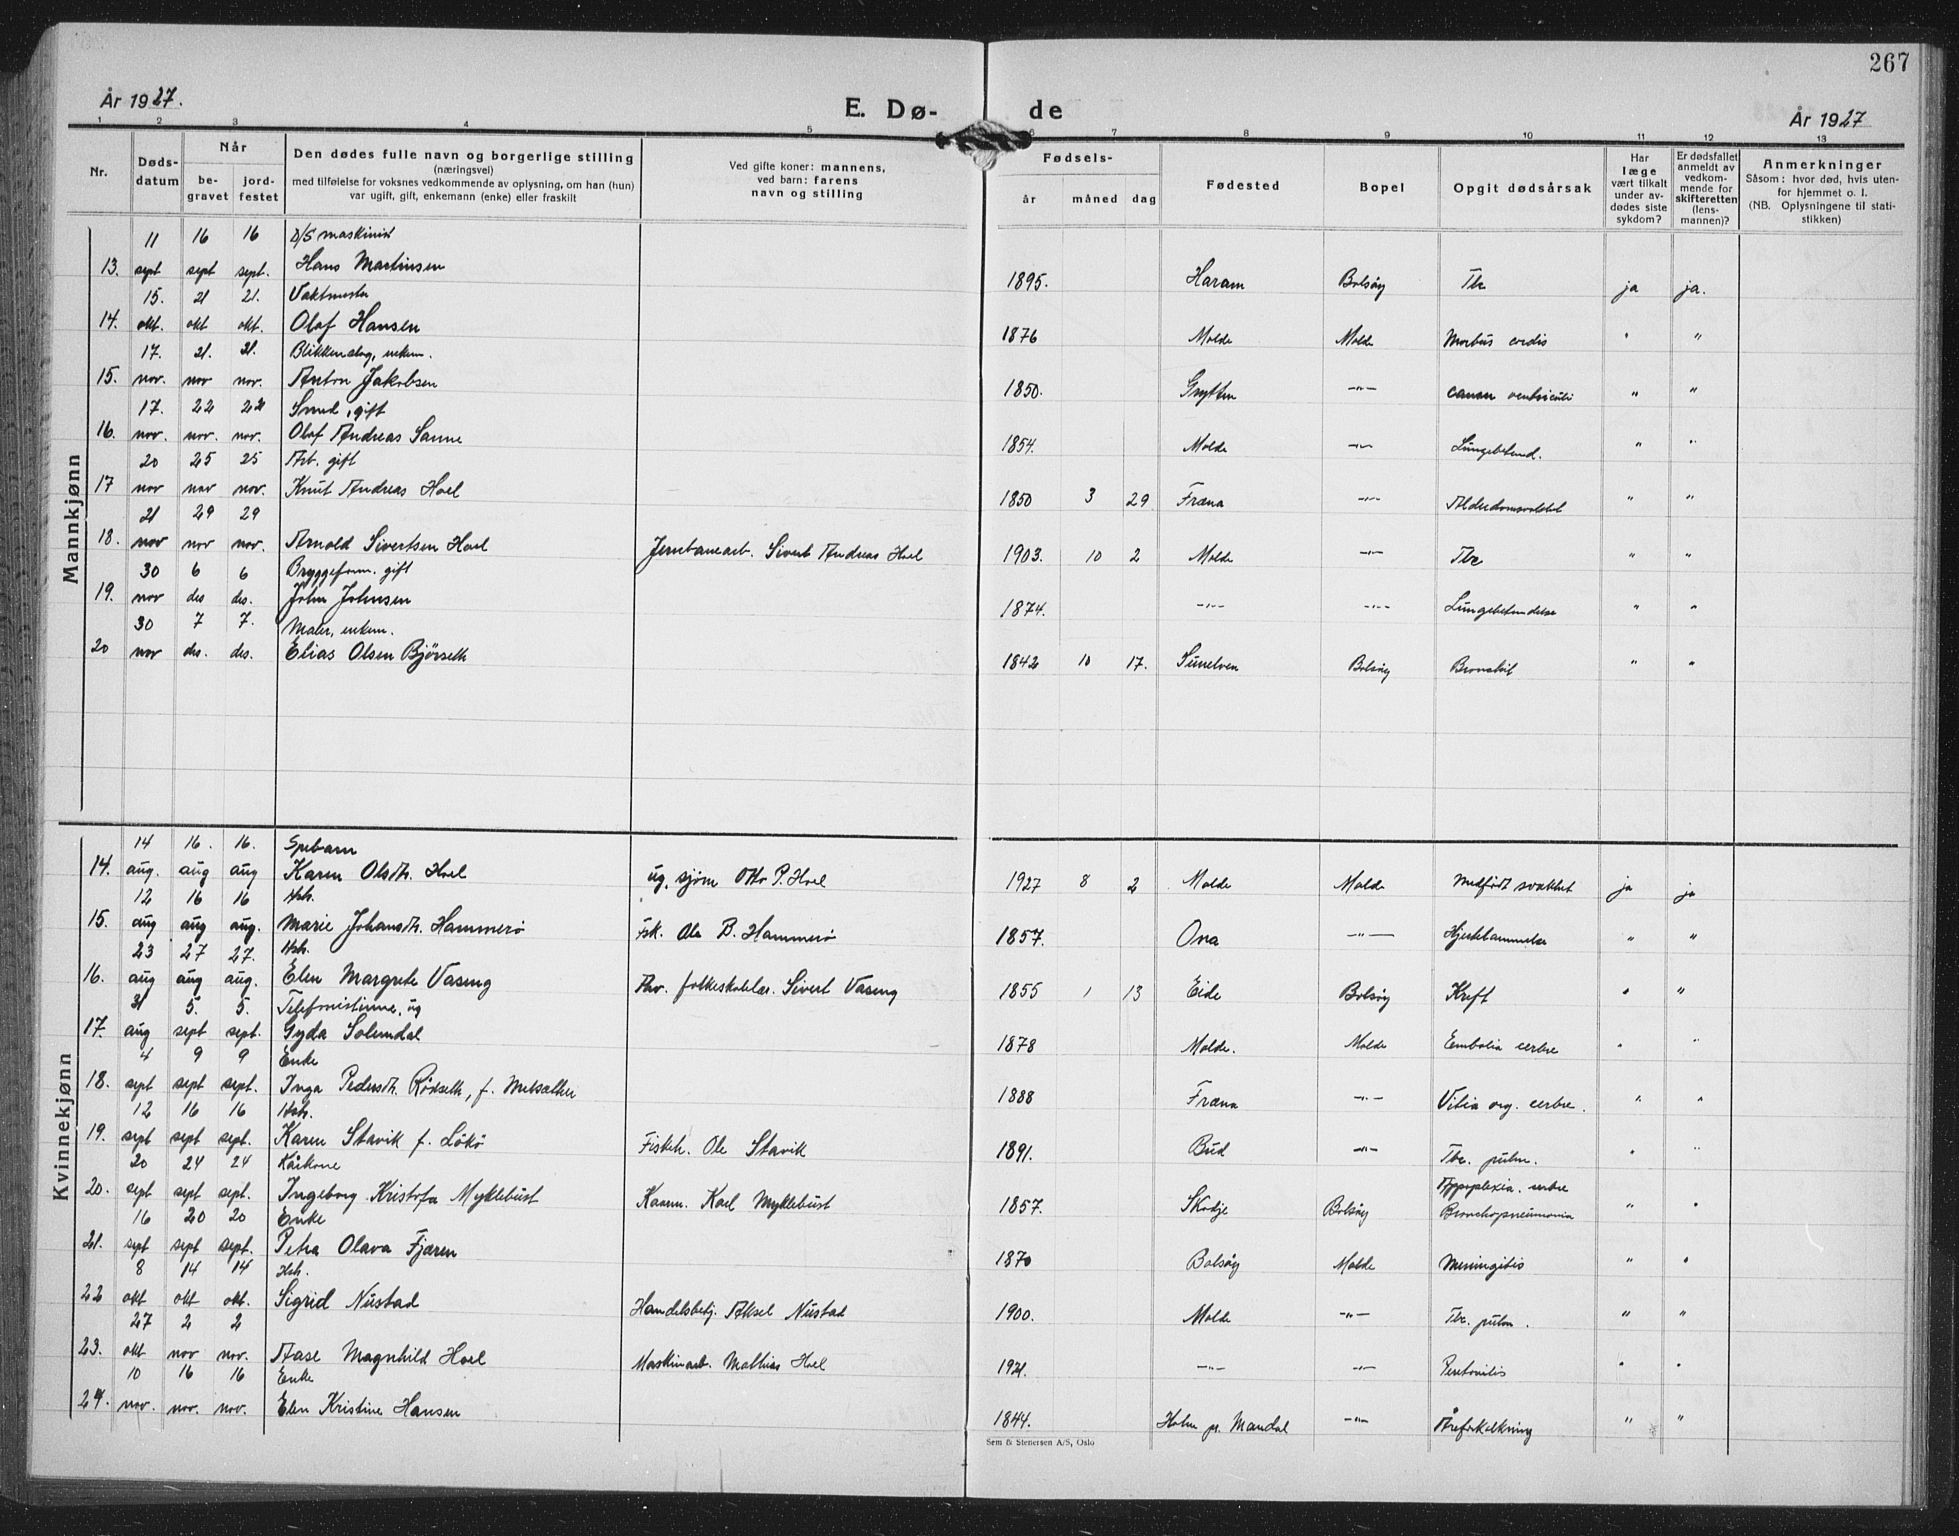 267
År 1927.
E. Dø- de
År 1927
1 2 3 4 5 6 7 8 9 10 11 12 13
Nr.
Døds-datum
Når
be-gravet
jord-festet
Den dødes fulle navn og borgerlige stilling
(næringsvei)
med tilføielse for voksnes vedkommende av oplysning, om han (hun)
var ugift, gift, enkemann (enke) eller fraskilt
Ved gifte koner: mannens,
ved barn: farens
navn og stilling
Fødsels-
år måned dag
Fødested
Bopel
Opgit dødsårsak
Har læge vært tilkalt under av-dødes siste sykdom?
Er dødsfallet anmeldt av vedkom-mende for skifteretten (lens-mannen)?
Anmerkninger
Såsom: hvor død, hvis uten-
for hjemmet o. l.
(NB. Oplysningene til stati-
stikken)
Mannkjønn
11 16 16 D/S maskinist
13. sept sept sept. Hans Martinsen 1895. Haram Bolsøy Tbc ja ja.
15. 21 21. Vaktmester
14. okt. okt okt. Olaf Hansen 1876 Molde Molde Morbus cordis " "
17. 21. 21. Blikkenslag, enkem.
15. nov. nov nov. Anton Jakobsen 1850. Grytten -"- cancer ventriculi " "
17. 22 22 Smed, gift
16. nov. nov. nov. Olaf Andreas Sanne 1854. Molde -"- Lungebetend. " "
20 25 25 Arb. gift
17 nov nov nov. Knut Andreas Hoel 1850 3 29 Fræna -"- Alderdomsvakhet " "
21 29 29
18. nov nov nov. Arnold Sivertsen Hoel Jernbanearb. Sivert Andreas Hoel 1903. 10 2 Molde -"- Tbc " "
30 6 6 Bryggeform. gift
19. nov des des. John Johnsen 1874. -"- -"- Lungebetendelse " "
30 7 7. Maler, enkem.
20 nov des. des. Elias Olsen Bjørseth 1842 10 17. Sunelven Bolsøy Bronchit " "
Kvinnekjønn
14 16. 16. Spebarn
14. aug. aug aug Karen Olsdtr. Hoel ug. sjøm Otto P. Hoel 1927 8 2 Molde Molde Medfødt svakhet ja ja
12 16 16 Hstr.
15. aug aug aug. Marie Johansdtr. Hammerø Fsk. Ole B. Hammerø 1857. Ona -"- Hjertelammelse " "
23 27 27. Hstr.
16. aug aug aug. Elen Margrete Vaseng Pav. folkeskolelær. Sivert Vaseng 1855 1 13 Eide Bolsøy Kreft " "
31 5. 5. Telefonistinne, ug
17. aug sept sept. Gyda Solemdal 1878 Molde. Molde Embolia cerbre " "
4 9 9 Enke
18. sept sept sept. Inga Pedersdtr. Rødseth, f. Melsæther 1888 Fræna -"- Vitia org. cerbre. " "
12 16 16 Hstr.
19. sept sept sept. Karen Stavik f. Løkø Fiskeh. Ole Stavik 1891. Bud -"- Tbc. pulm. " "
20 24 24 Kårkone
20. sept sept sept. Ingeborg Kristofa Myklebust Kaarm. Karl Myklebust 1857. Skodje Bolsøy Appoplexia. cerbre Bronchopneumonia " "
16 20 20 Enke
21. sept sept. sept. Petra Olava Fjæren 1870 Bolsøy Molde Meningitis " "
8 14 14 Hstr.
22 okt okt okt. Sigrid Nustad Handelsbetj. Aksel Nustad 1900. Molde -"- Tbc. pulm. " "
27 2 2
23. okt nov nov. Aase Magnhild Hoel Maskinarb. Mathias Hoel 1921. -"- -"- Peritonitis " "
10 16 16 Enke
24. nov. nov. nov. Elen Kristine Hansen 1844. Holm pr. Mandal -"- Åreforkalkning " "
Sem & Stenersen A/S, Oslo